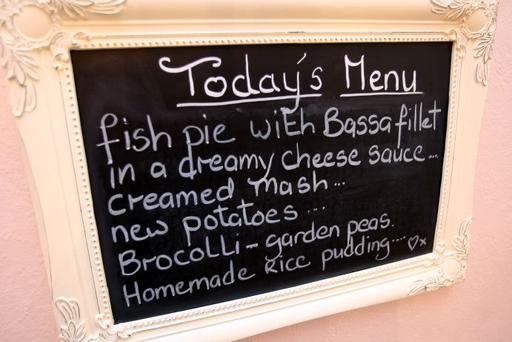 Today's Menu
fish pie with Bassa fillet
in a dreamy cheese sauce...
creamed mash...
new potatoes...
Brocolli - garden peas.
Homemade Rice pudding.... ♡x